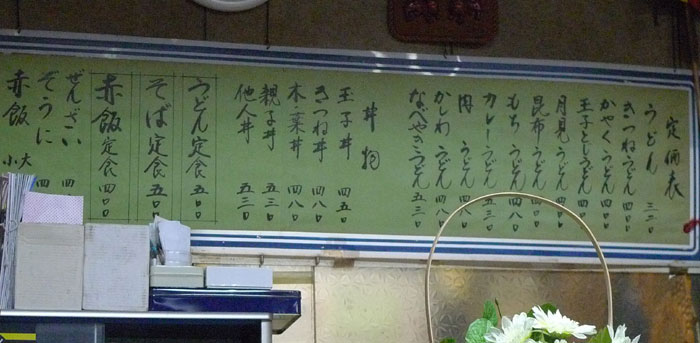 定価表
うどん 三三〇
きつねうどん 四〇〇
かやくうどん 四〇〇
玉子としうどん 四〇〇
月見うどん 四〇〇
昆布うどん 四〇〇
もちうどん 四八〇
カレーうどん 五三〇
肉うどん 四八〇
かしわうどん 四八〇
なべやきうどん 五三〇
丼物
玉子丼 四五〇
きつね丼 四八〇
木の葉丼 四八〇
親子丼 五三〇
他人丼 五三〇
うどん定食 五〇〇
そば定食 五〇〇
赤飯定食 四〇〇
ぜんざい 四
ぞうに 四
赤飯 大 小